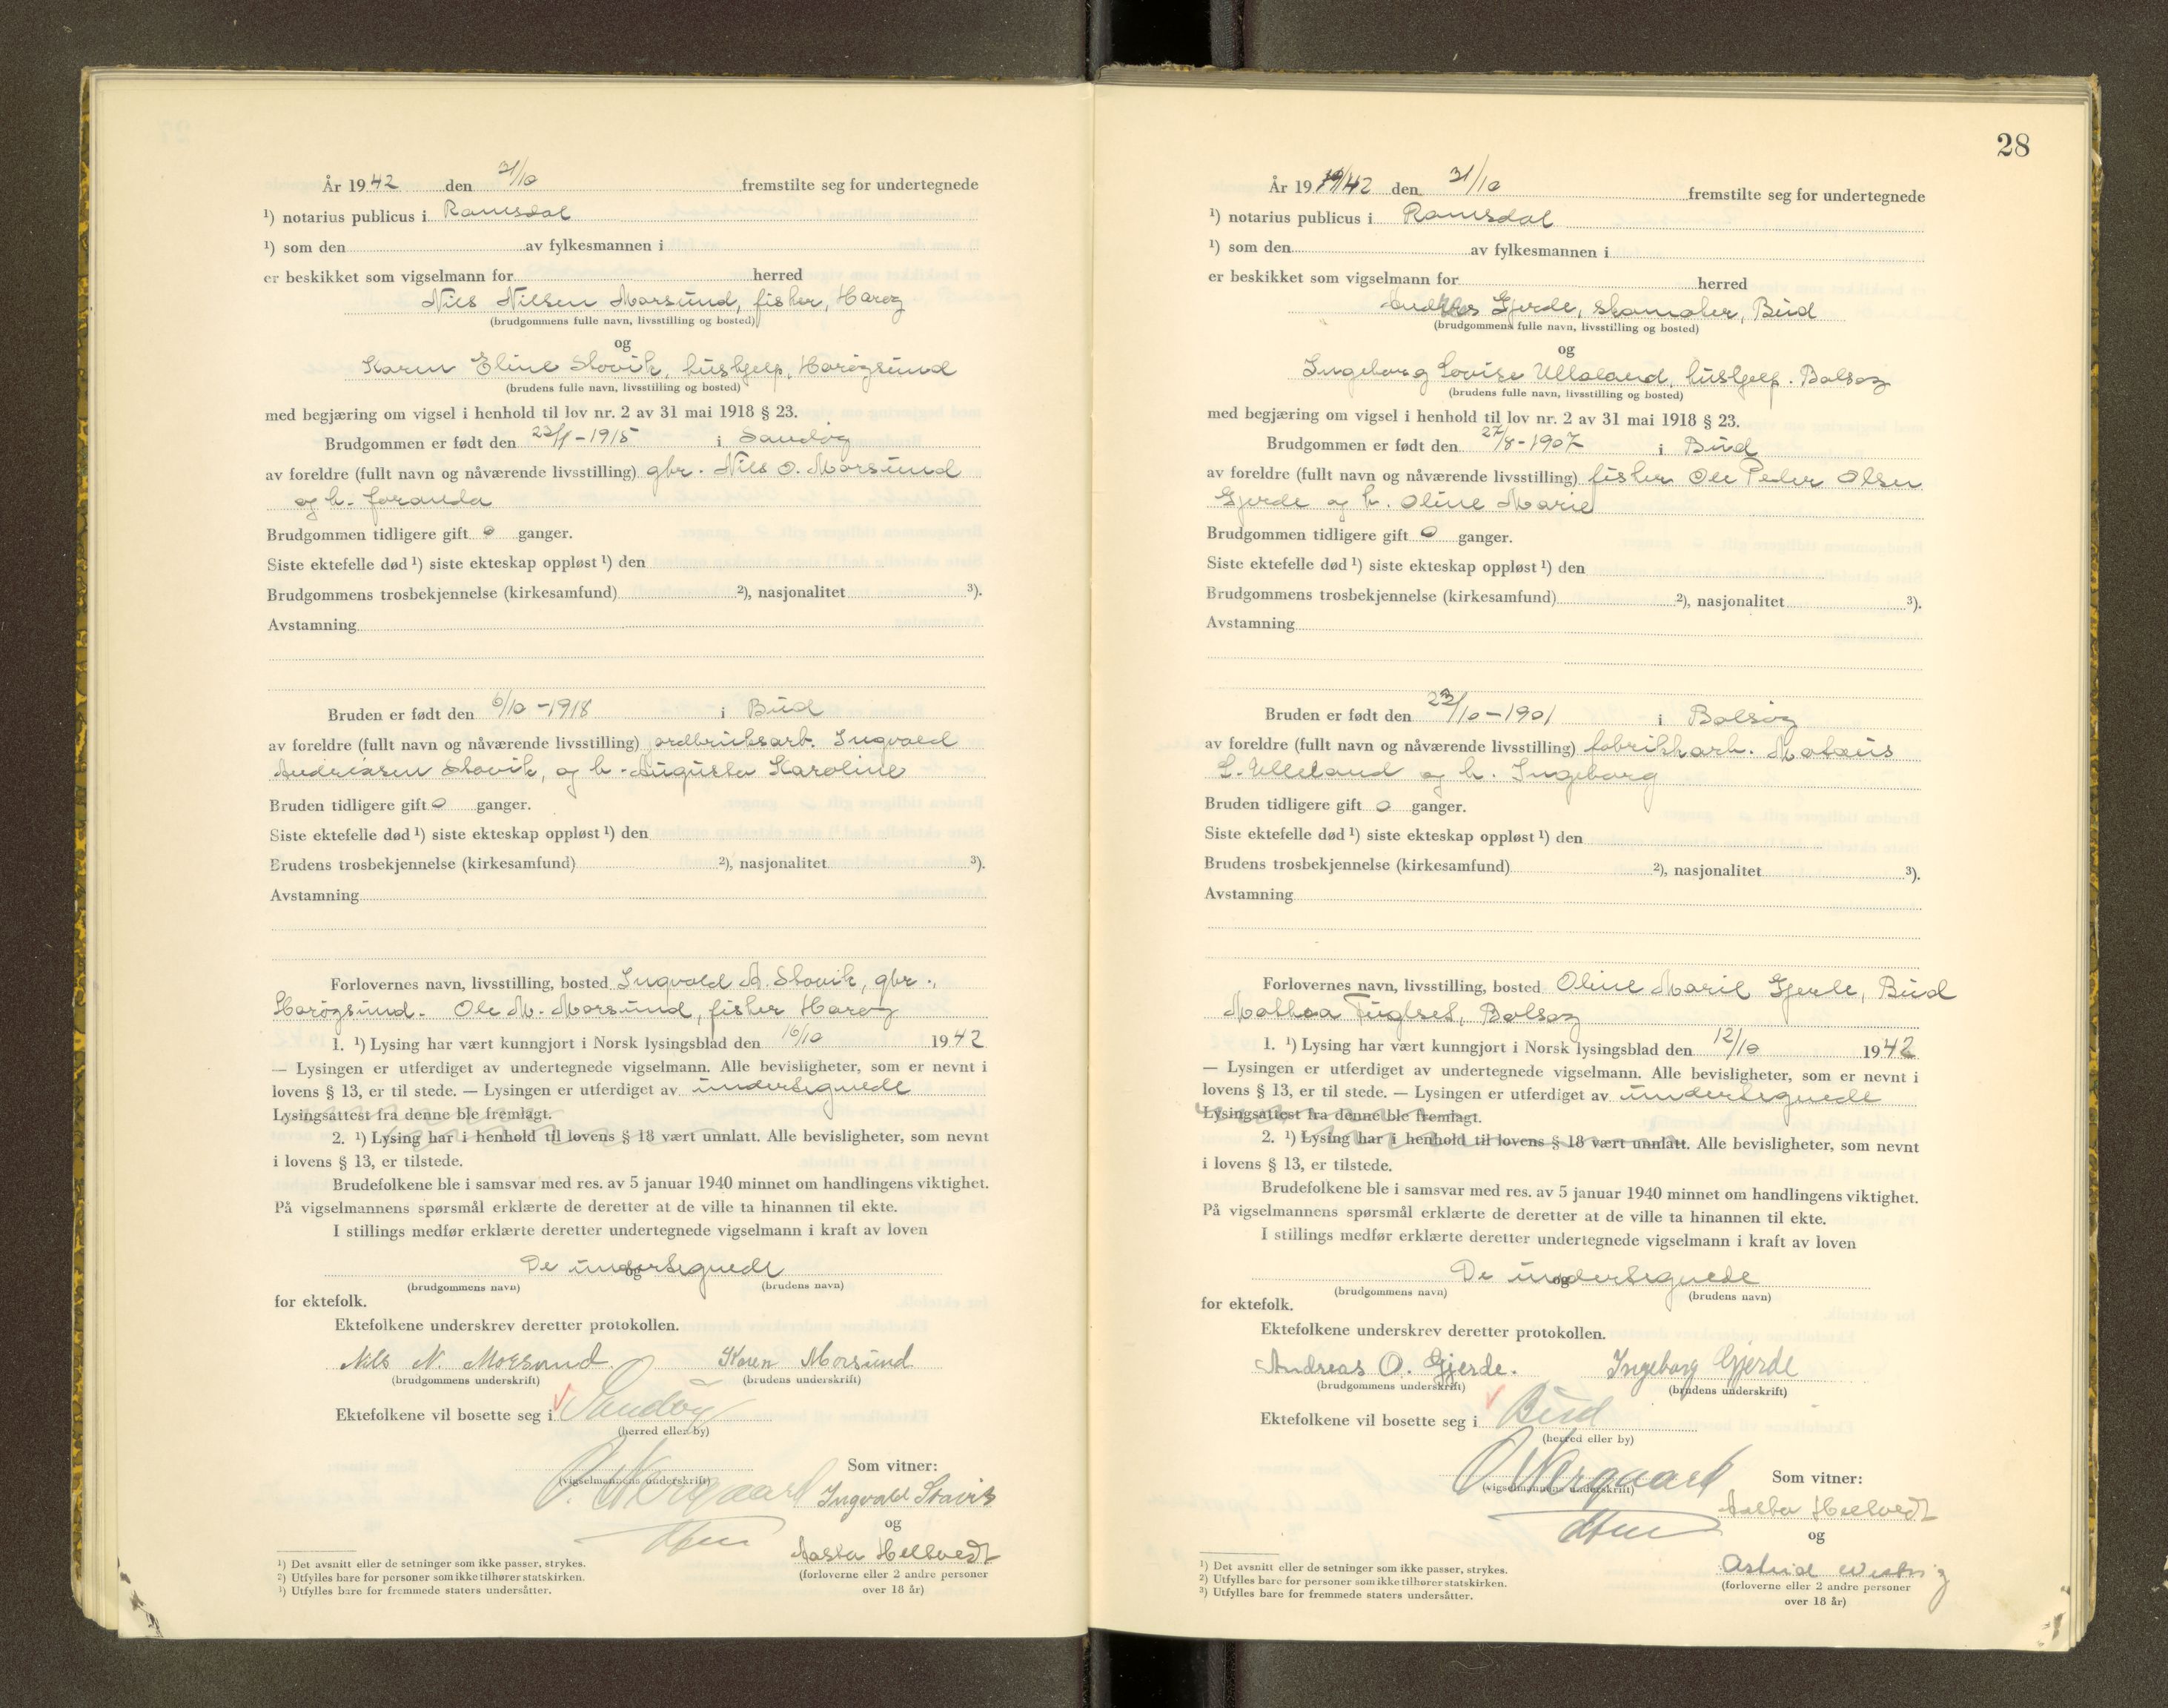 År 1942 den 31/10 fremstilte seg for undertegnede
¹) notarius publicus i Romsdal
¹) som den av fylkesmannen i
er beskikket som vigselmann for herred
Nils Nilsen Morsund, fisker, Harøy
(brudgommens fulle navn, livsstilling og bosted)
og
Karen Eline Stavik, hushjelp, Harøysund
(brudens fulle navn, livsstilling og bosted)
med begjæring om vigsel i henhold til lov nr. 2 av 31 mai 1918 § 23.
Brudgommen er født den - 1915 i Sandøy
av foreldre (fullt navn og nåværende livsstilling) gbr. Nils O. Morsund
og h.
Brudgommen tidligere gift 0 ganger.
Siste ektefelle død ¹) siste ekteskap oppløst ¹) den
Brudgommens trosbekjennelse (kirkesamfund) ²), nasjonalitet ³).
Avstamning
Bruden er født den 6/10 - 1918 i Bud
av foreldre (fullt navn og nåværende livsstilling) jordbruksarb. Ingvald
Andreasen Stavik, og h. Augusta Karoline
Bruden tidligere gift 0 ganger.
Siste ektefelle død ¹) siste ekteskap oppløst ¹) den
Brudens trosbekjennelse (kirkesamfund) ²), nasjonalitet ³).
Avstamning
Forlovernes navn, livsstilling, bosted Ingvald A. Stavik, gbr.,
Harøysund. Ole M. Morsund, fisker Harøy
1. ¹) Lysing har vært kunngjort i Norsk lysingsblad den 16/10 1942
— Lysingen er utferdiget av undertegnede vigselmann. Alle bevisligheter, som er nevnt i
lovens § 13, er til stede. — Lysingen er utferdiget av undertegnede
Lysingsattest fra denne ble fremlagt.
2. ¹) Lysing har i henhold til lovens § 18 vært unnlatt. Alle bevisligheter, som nevnt
i lovens § 13, er tilstede.
Brudefolkene ble i samsvar med res. av 5 januar 1940 minnet om handlingens viktighet.
På vigselmannens spørsmål erklærte de deretter at de ville ta hinannen til ekte.
I stillings medfør erklærte deretter undertegnede vigselmann i kraft av loven
De undertegnede
og
(brudgommens navn) (brudens navn)
for ektefolk.
Ektefolkene underskrev deretter protokollen.
Nils N. Morsund Karen Morsund
(brudgommens underskrift) (brudens underskrift)
Ektefolkene vil bosette seg i Sandøy
(herred eller by)
Som vitner:
(vigselmannens underskrift)
Ingvald Stavik
og
Aasta Helseth
(forloverne eller 2 andre personer
over 18 år)
¹) Det avsnitt eller de setninger som ikke passer, strykes.
²) Utfylles bare for personer som ikke tilhører statskirken.
³) Utfylles bare for fremmede staters undersåtter.
28
År 1942 den 31/10 fremstilte seg for undertegnede
¹) notarius publicus i Romsdal
¹) som den av fylkesmannen i
er beskikket som vigselmann for herred
Andreas Gjerde, skomaker, Bud
(brudgommens fulle navn, livsstilling og bosted)
og
Ingeborg Lovise Ulleland, hushjelp. Bolsøy
(brudens fulle navn, livsstilling og bosted)
med begjæring om vigsel i henhold til lov nr. 2 av 31 mai 1918 § 23.
Brudgommen er født den 27/8 - 1907 i Bud
av foreldre (fullt navn og nåværende livsstilling) fisker Ole Peder Olsen
Gjerde og h. Oline Marie
Brudgommen tidligere gift 0 ganger.
Siste ektefelle død ¹) siste ekteskap oppløst ¹) den
Brudgommens trosbekjennelse (kirkesamfund) ²), nasjonalitet ³).
Avstamning
Bruden er født den /10 - 1901 i Bolsøy
av foreldre (fullt navn og nåværende livsstilling) fabrikkarb. Mateus
L. Ulleland og h. Ingeborg
Bruden tidligere gift 0 ganger.
Siste ektefelle død ¹) siste ekteskap oppløst ¹) den
Brudens trosbekjennelse (kirkesamfund) ²), nasjonalitet ³).
Avstamning
Forlovernes navn, livsstilling, bosted Oline Marie Gjerde, Bud
Mathea Fuglset, Bolsøy
1. ¹) Lysing har vært kunngjort i Norsk lysingsblad den 12/10 1942
— Lysingen er utferdiget av undertegnede vigselmann. Alle bevisligheter, som er nevnt i
lovens § 13, er til stede. — Lysingen er utferdiget av undertegnede
Lysingsattest fra denne ble fremlagt.
2. ¹) Lysing har i henhold til lovens § 18 vært unnlatt. Alle bevisligheter, som nevnt
i lovens § 13, er tilstede.
Brudefolkene ble i samsvar med res. av 5 januar 1940 minnet om handlingens viktighet.
På vigselmannens spørsmål erklærte de deretter at de ville ta hinannen til ekte.
I stillings medfør erklærte deretter undertegnede vigselmann i kraft av loven
De undertegnede
og
(brudgommens navn) (brudens navn)
for ektefolk.
Ektefolkene underskrev deretter protokollen.
Andreas O. Gjerde. Ingeborg Gjerde
(brudgommens underskrift) (brudens underskrift)
Ektefolkene vil bosette seg i Bud
(herred eller by)
Som vitner:
(vigselmannens underskrift)
Aasta Helseth
og
Astrid
(forloverne eller 2 andre personer
over 18 år)
¹) Det avsnitt eller de setninger som ikke passer, strykes.
²) Utfylles bare for personer som ikke tilhører statskirken.
³) Utfylles bare for fremmede staters undersåtter.